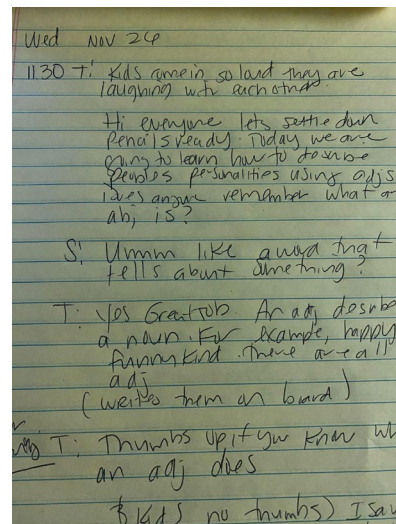 Wed Nov 26
11.30 T: Kids came in so loud they are
laughing with each other.
Hi everyone lets settle down
Pencils ready. Today we are
going to learn how to describe
peoples personalities using adjs
Does anyone remember what a
adj is?
S: Ummm like a word that
tells about something?
T: Yes Great Job. An adj desribe
a noun. For example, happy
funny kind. There are all
adj
(writes them on board)
T: Thumbs up if you know wh
an adj does
kids no thumbs) I saw